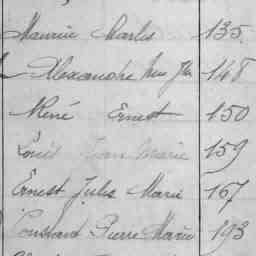 Maurice Charles 135
Alexandre 148
René Ernest 150
Louis Jean Marie 159
Ernest Jules Marie 167
Constant Pierre Marie 193